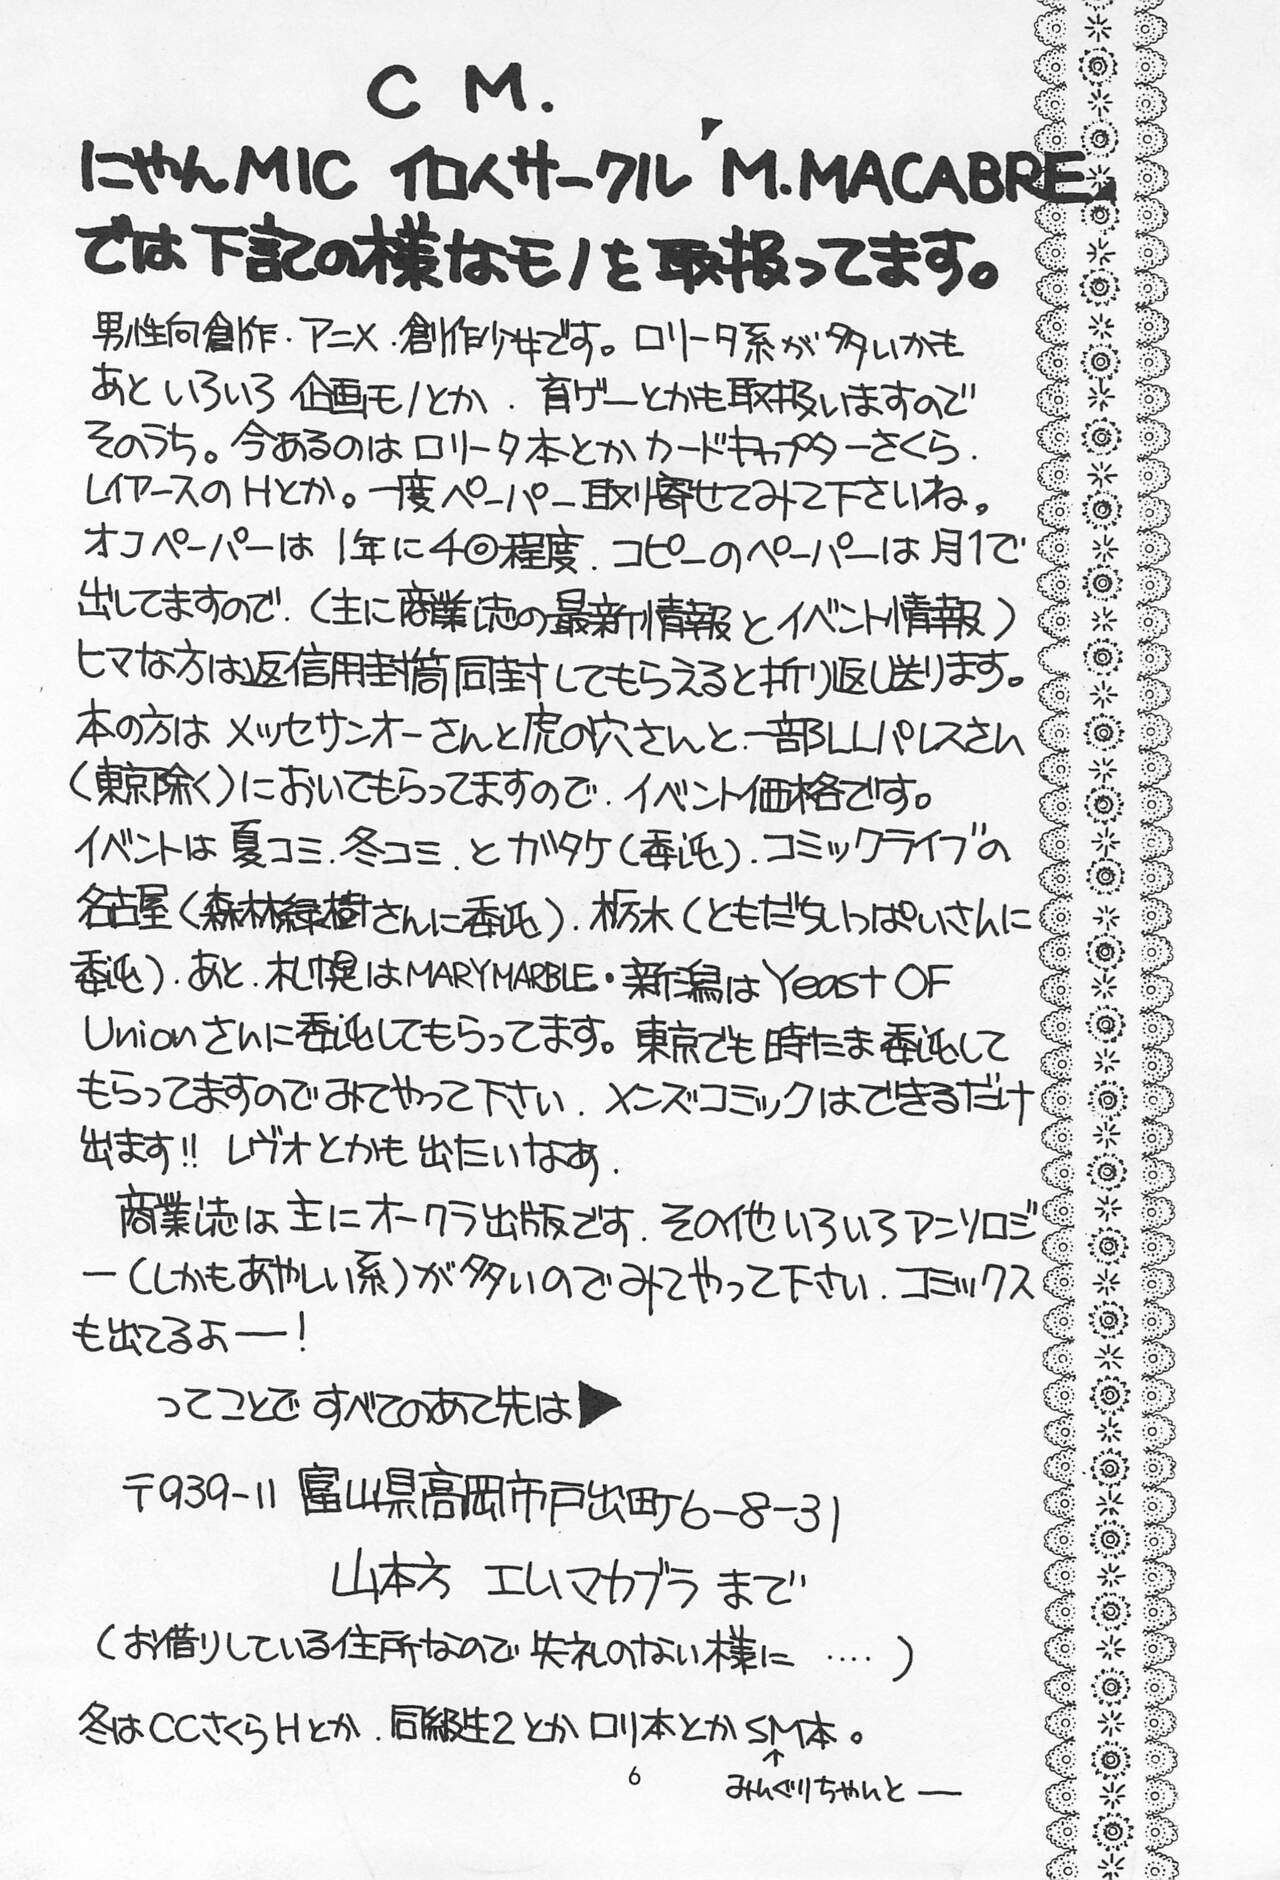 C M.
にゃんMIC 個人サークル「M.MACABRE」
では下記の様なモノを取扱ってます。
男性向創作・アニメ・創作少女です。ロリータ系が多いかも
あといろいろ企画モノとか、育ゲーとかも取扱いますので
そのうち。今あるのはロリータ本とかカードキャプターさくら、
レイアースのHとか。一度ペーパー取り寄せてみて下さいね。
オフペーパーは1年に4回程度、コピーのペーパーは月1で
出してますので、(主に商業誌の最新刊情報とイベント情報)
ヒマな方は返信用封筒同封してもらえると折り返し送ります。
本の方はメッセサンオーさんと虎の穴さんと、一部LLパレスさん
(東京除く)においてもらってますので、イベント価格です。
イベントは夏コミ、冬コミ、とガタケ(委託)、コミックライブの
名古屋(森林緑樹さんに委託)、栃木(ともだちいっぱいさんに
委託)、あと、札幌はMARYMARBLE・新潟はYeast OF
Unionさんに委託してもらってます。東京でも時たま委託して
もらってますのでみてやって下さい、メンズコミックはできるだけ
出ます!! レヴォとかも出たいなあ、
商業誌は主にオークラ出版です、その他いろいろアンソロジ
ー(しかもあやしい系)が多いのでみてやって下さい、コミックス
も出てるよ──!
ってことですべてのあて先は▶
〒939-11 富山県高岡市戸出町6-8-31
山本方 エムマカブラまで
(お借りしている住所なので失礼のない様に‥‥)
冬はCCさくらHとか、同級生2とかロリ本とかSM本。
↑
みんぐりちゃんと──
6